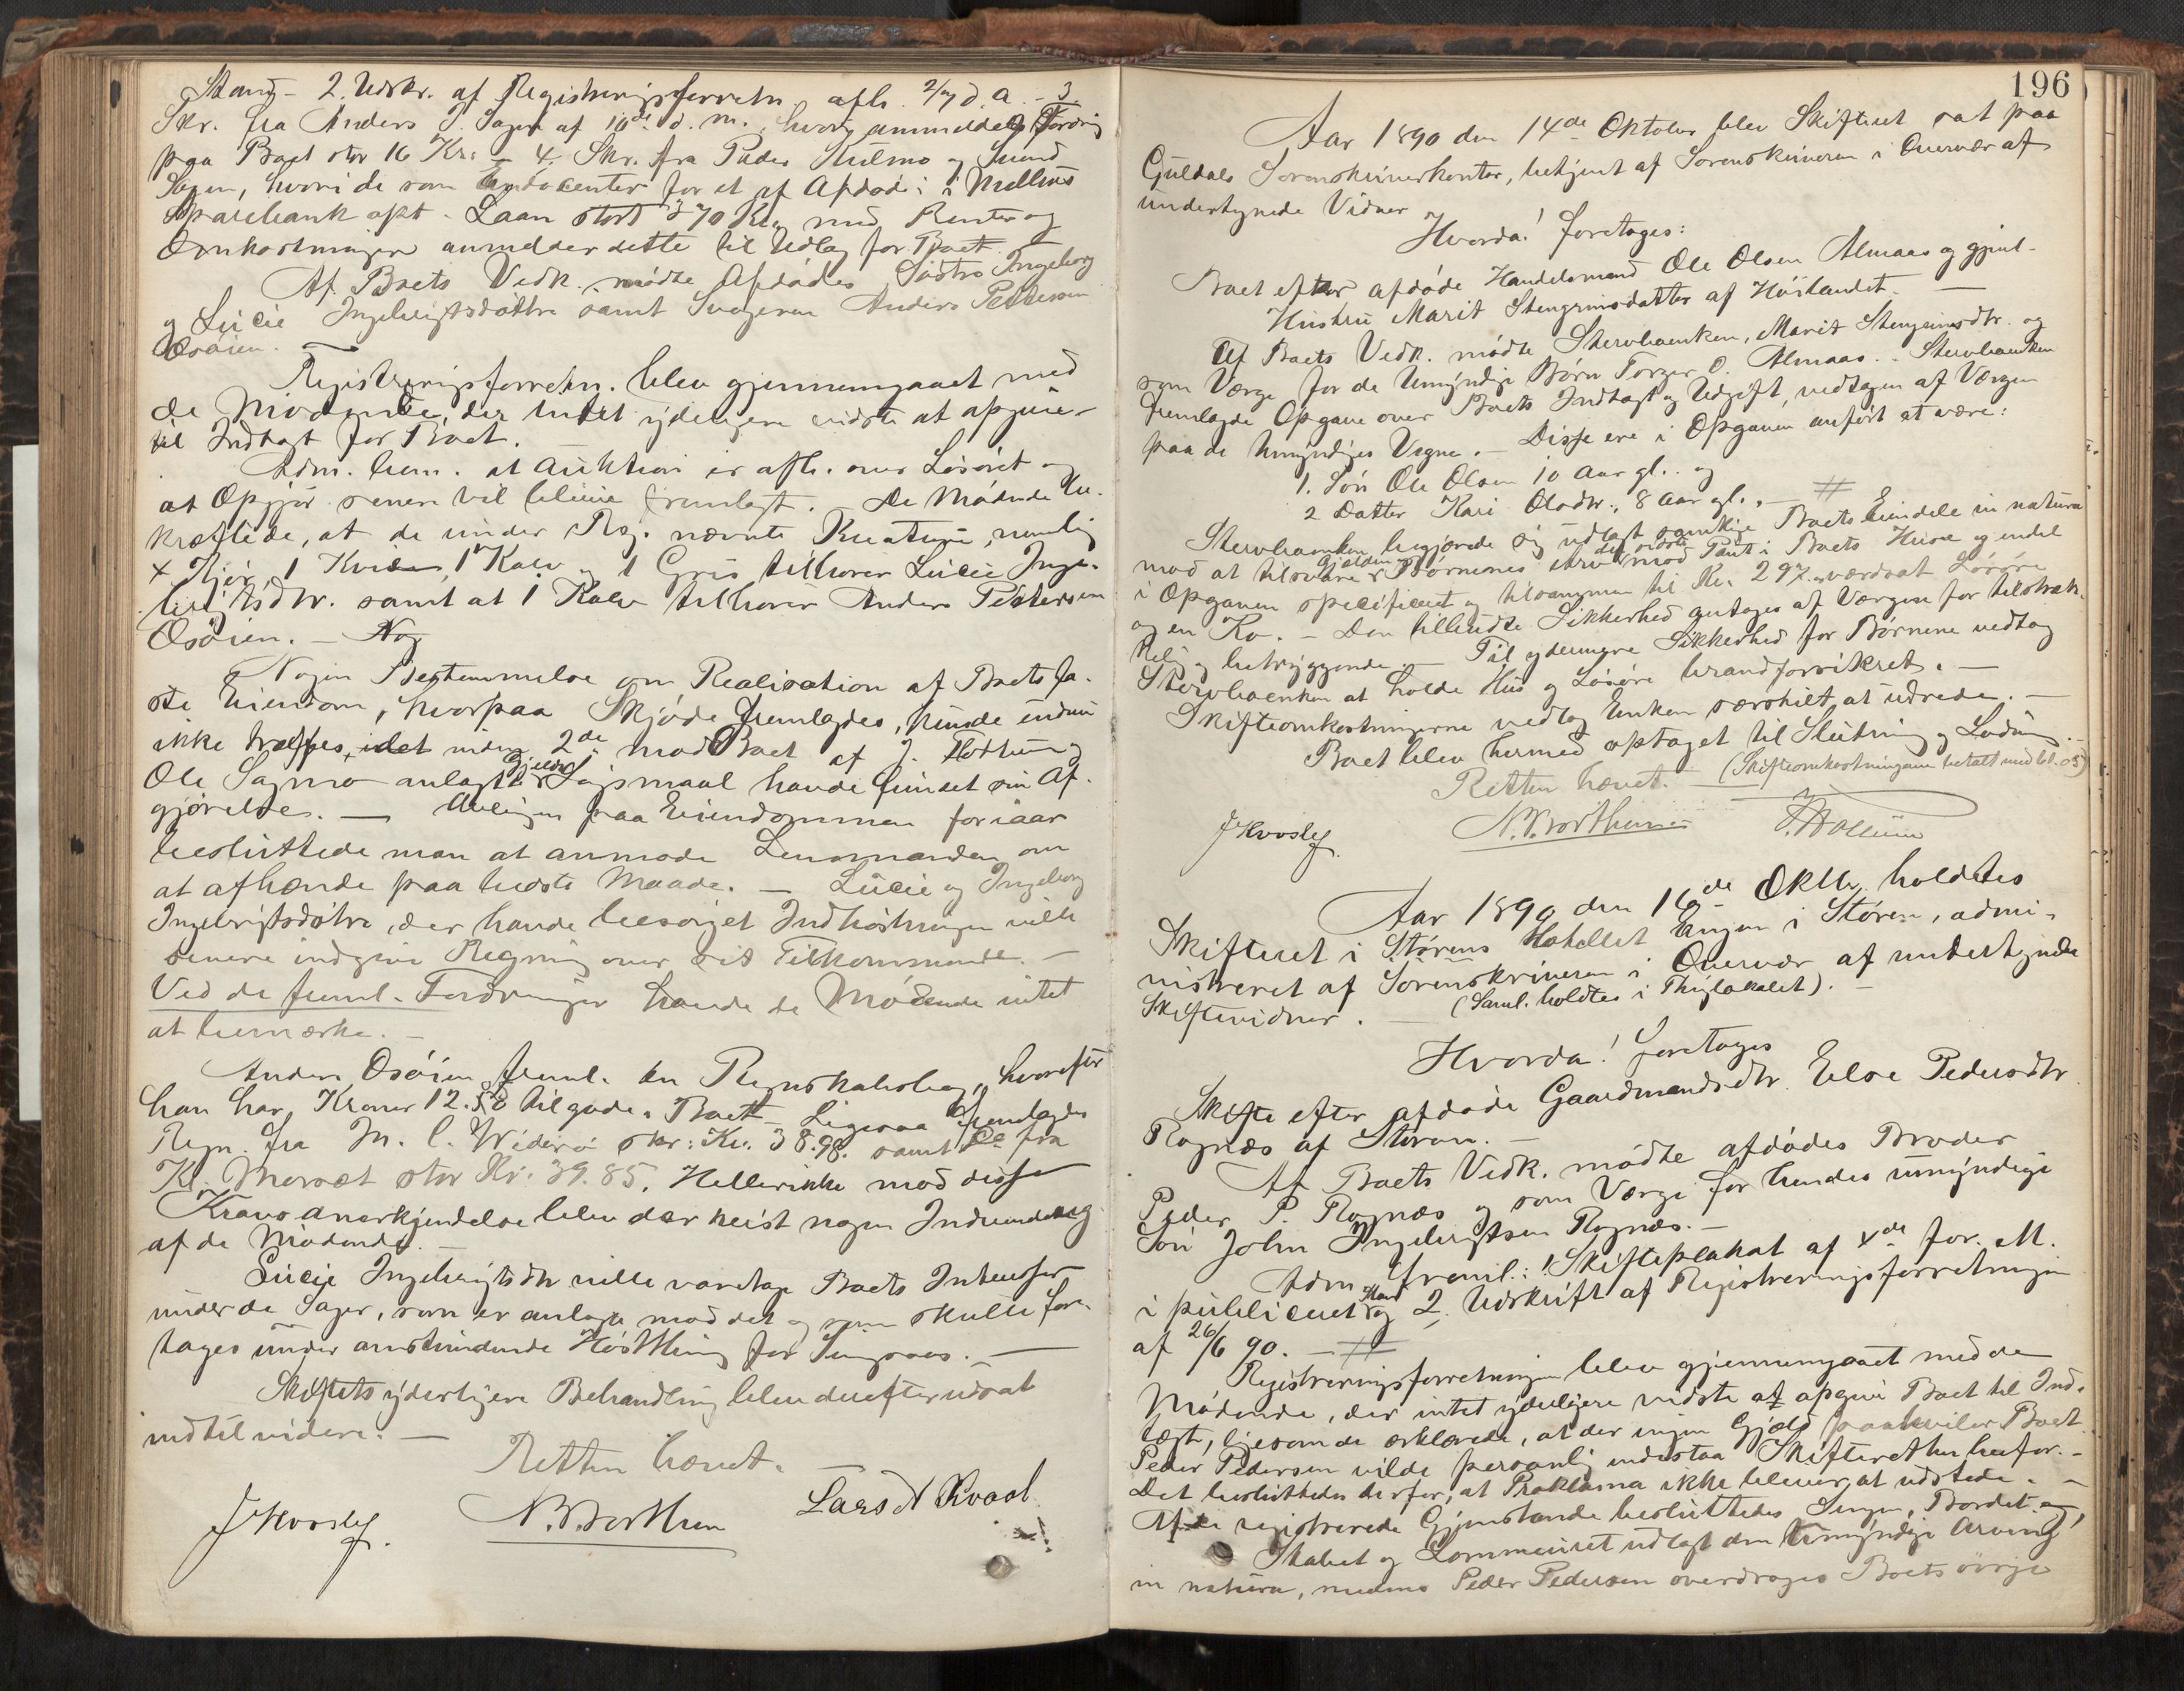 Stand - 2. Udskr. af Registreringsforretn. afh. 2/7 d. A. - 3
Skr. fra Anders J. Sagen af 10de d. m., hvorg anmeldes Fordring
paa Boet stor 16 Kr. - 4. Skr. fra Peder Kulmo og
hvori de som for et af Afdøde i Melhus
Sparebank opt. Laan stort 370 Kr. med Renter og
Omkostninger anmelder dette til Udlæg for Boet.
Af Boets Vedk. mødte Afdødes Søstre Ingeborg
og Lucie Ingebrigtsdøttre samt Svogeren Anders Pettersen
Osøien.
Registreringsforretn. blev gjennemgaaet med
de Mødende, der Intet ydeligere vidste at opgive
til Indtægt for Boet.
Adm. bem. at Auktion er afh. over Løsøret og
at Opgjør senere vil blive fremlagt. De Mødende be-
kræftede, at de under Reg. nævnte Kreature, nemlig
4 Kjør, 1 Kvie, 1 Kalv og 1 Gris tilhører Lucie Inge-
brigtsdtr. samt at 1 Kalv tilhører Anders Pettersen
Osøien. - Nog
Nogen Bestemmelse om Realisation af Boets fa-
ste Eiendom, hvorpaa Skjøde fremlagdes, kunde endnu
ikke træffes, idet inden 2de mod Boet af J. og
Ole Sagmo anlagte Gjelds Søgsmaal havde fundet sin Af-
gjørelse. - Avlingen paa Eiendommen for iaar
besluttede man at anmode Lensmanden om
at afhænde paa bedste Maade. - Lucie og Ingeborg
Ingebrigtsdøtre, der havde besørget Indhøstningen ville
senere indgive Regning over sit Tilkommende. -
Ved de freml. Fordringer havde de Mødende intet
at bemærke. -
Anders Osøien freml. en Regnskabsbog, hvorefter
han har Kroner 12.58 tilgode i Boet. Ligesaa fremlagdes
Regn. fra M. C. Widerø stor: Kr. 38.98. samt Do fra
Kl. Moraæt stor Kr. 39.85. Heller ikke mod disse
Kravs anerkjendelse blev der reist nogen Indvending
af de Mødende. -
Lucie Ingebrigtsdtr ville varetage Boets Interesser
under de Sager, som er anlagt mod det og som skulle fore-
tages under anstundende Høstthing for Singsaas. -
Skiftets yderligere Behandling blev derefter udsat
indtil videre. -
Retten hævet. -
J Hvoslef. N. P. Borthen Lars N Kvaal
196
Aar 1890 den 14de Oktober blev Skifteret sat paa
Guldals Sorenskriverkontor, betjent af Sorenskriveren i Overvær af
undertegnede Vidner
Hvorda! foretoges:
Boet efter afdøde Handelsmand Ole Olsen Almaas og gjenl.
Hustru Marit Stengrimsdatter af Høilandet. -
Af Boets Vedk. mødte Stervboenken, Marit Stengrimsdtr. og
som Værge for de Umyndige Børn Torger O. Almaas. - Stervboenken
fremlagde Opgave over Boets Indtægt og Udgift, vedtagen af Værgen
paa de Umyndiges Vegne. - Disse ere i Opgaven anført at være:
1. Søn Ole Olsen 10 Aar gl. og
2 Datter Kari Olsdtr., 8 Aar gl. -
Stervboenken begjærede sig udlagt samtlige Boets Eiendele in natura
mod at tilsvare Gjælden og Børnenes Arv det sidste mod Pant i Boets Huse og endel
i Opgaven specificeret og tilsammen til Kr. 297. værdsat Løsøre
og en Ko. - Den tilbudte Sikkerhed antoges af Værgen for tilstræk-
kelig og betryggende. - Til ydermere Sikkerhed for Børnene vedtog
Stervboenken at holde Hus og Løsøre brandforsikret. -
Skifteomkostningerne vedtog Enken særskilt at udrede. -
Boet blev hermed optaget til Slutning og Lodning. -
Retten hævet. - (Skifteomkostningerne betalt med bl. 03)
J Hvoslef. N. P. Borthen
Aar 1890 den 16de Oktbr. holdtes
Skifteret i Størens Hotellet Engen i Støren, admi-
nistreret af Sorenskriveren i Overvær af undertegnede
Skiftevidner. - (Saml. holdtes i Thinglokalet). -
Hvorda! foretoges
Skifte efter afdøde Gaardmandsdtr. Else Pedersdtr
Rognæs af Støren. -
Af Boets Vedk. mødte afdødes Broder
Peder P. Rognæs og som Værge for hendes umyndige
Søn John Ingebrigtsen Rognæs. -
Adm. freml.: 1 Skifteplakat af 4de for. M.
i publiceret Stand og 2. Udskrift af Registreringsforretningen
af 26/6 90. -
Registreringsforretningen blev gjennemgaaet med de
Mødende, der intet yderligere vidste at opgive Boet til Ind-
tægt, ligesom de erklærede, at der ingen Gjæld paahviler Boet.
Peder Pedersen vilde personlig indestaa Skifteretten herfor. -
Det besluttedes derfor, at Proklama ikke bliver at udstede. -
Af de registrerede Gjenstande besluttedes Sengen, Bordet og
Skabet og Lommeuret udlagt den Umyndige Arving
in natura, medens Peder Pedersen overdroges Boets øvrige